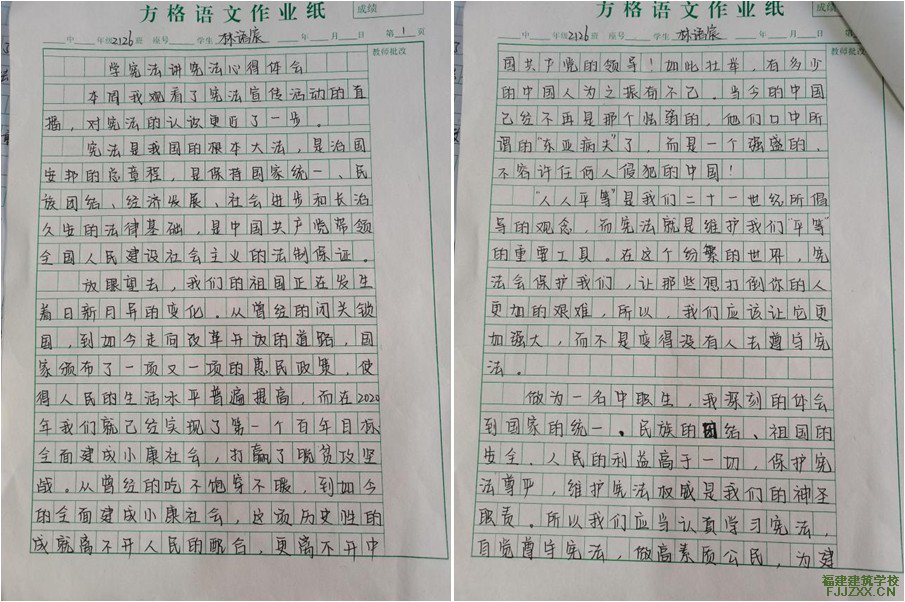 方格语文作业纸
成绩
中 年级2126班 座号 学生 林语宸 年 月 日 第 1 页
教师批改
学宪法讲宪法心得体会
本周我观看了宪法宣传活动的直
播，对宪法的认识更近了一步。
宪法是我国的根本大法，是治国
安邦的总章程，是保持国家统一、民
族团结、经济发展、社会进步和长治
久安的法律基础，是中国共产党带领
全国人民建设社会主义的法制保证。
放眼望去，我们的祖国正在发生
着日新月异的变化。从曾经的闭关锁
国，到如今走向改革开放的道路，国
家颁布了一项又一项的惠民政策，使
得人民的生活水平普遍提高，而在2020
年我们就已经实现了第一个百年目标
全面建成小康社会，打赢了脱贫攻坚
战。从曾经的吃不饱穿不暖，到如今
的全面建成小康社会，这项历史性的
成就离不开人民的配合，更离不开中
方格语文作业纸
成绩
中 年级2126班 座号 学生 林语宸 年 月 日 第 页
教师批改
国共产党的领导！如此壮举，有多少
的中国人为之振有不已。当今的中国
已经不再是那个怯弱的，他们口中所
谓的“东亚病夫”了，而是一个强盛的、
不容许任何人侵犯的中国！
“人人平等”是我们二十一世纪所倡
导的观念，而宪法就是维护我们“平等”
的重要工具。在这个纷繁的世界，宪
法会保护我们，让那些想打倒你的人
更加的艰难，所以，我们应该让它更
加强大，而不是变得没有人去遵守宪
法。
做为一名中职生，我深刻的体会
到国家的统一、民族的团结、祖国的
安全、人民的利益高于一切，保护宪
法尊严，维护宪法权威是我们的神圣
职责。所以我们应当认真学习宪法，
自觉遵守宪法，做高素质公民，为建
福建建筑学校
FJJZXX.CN